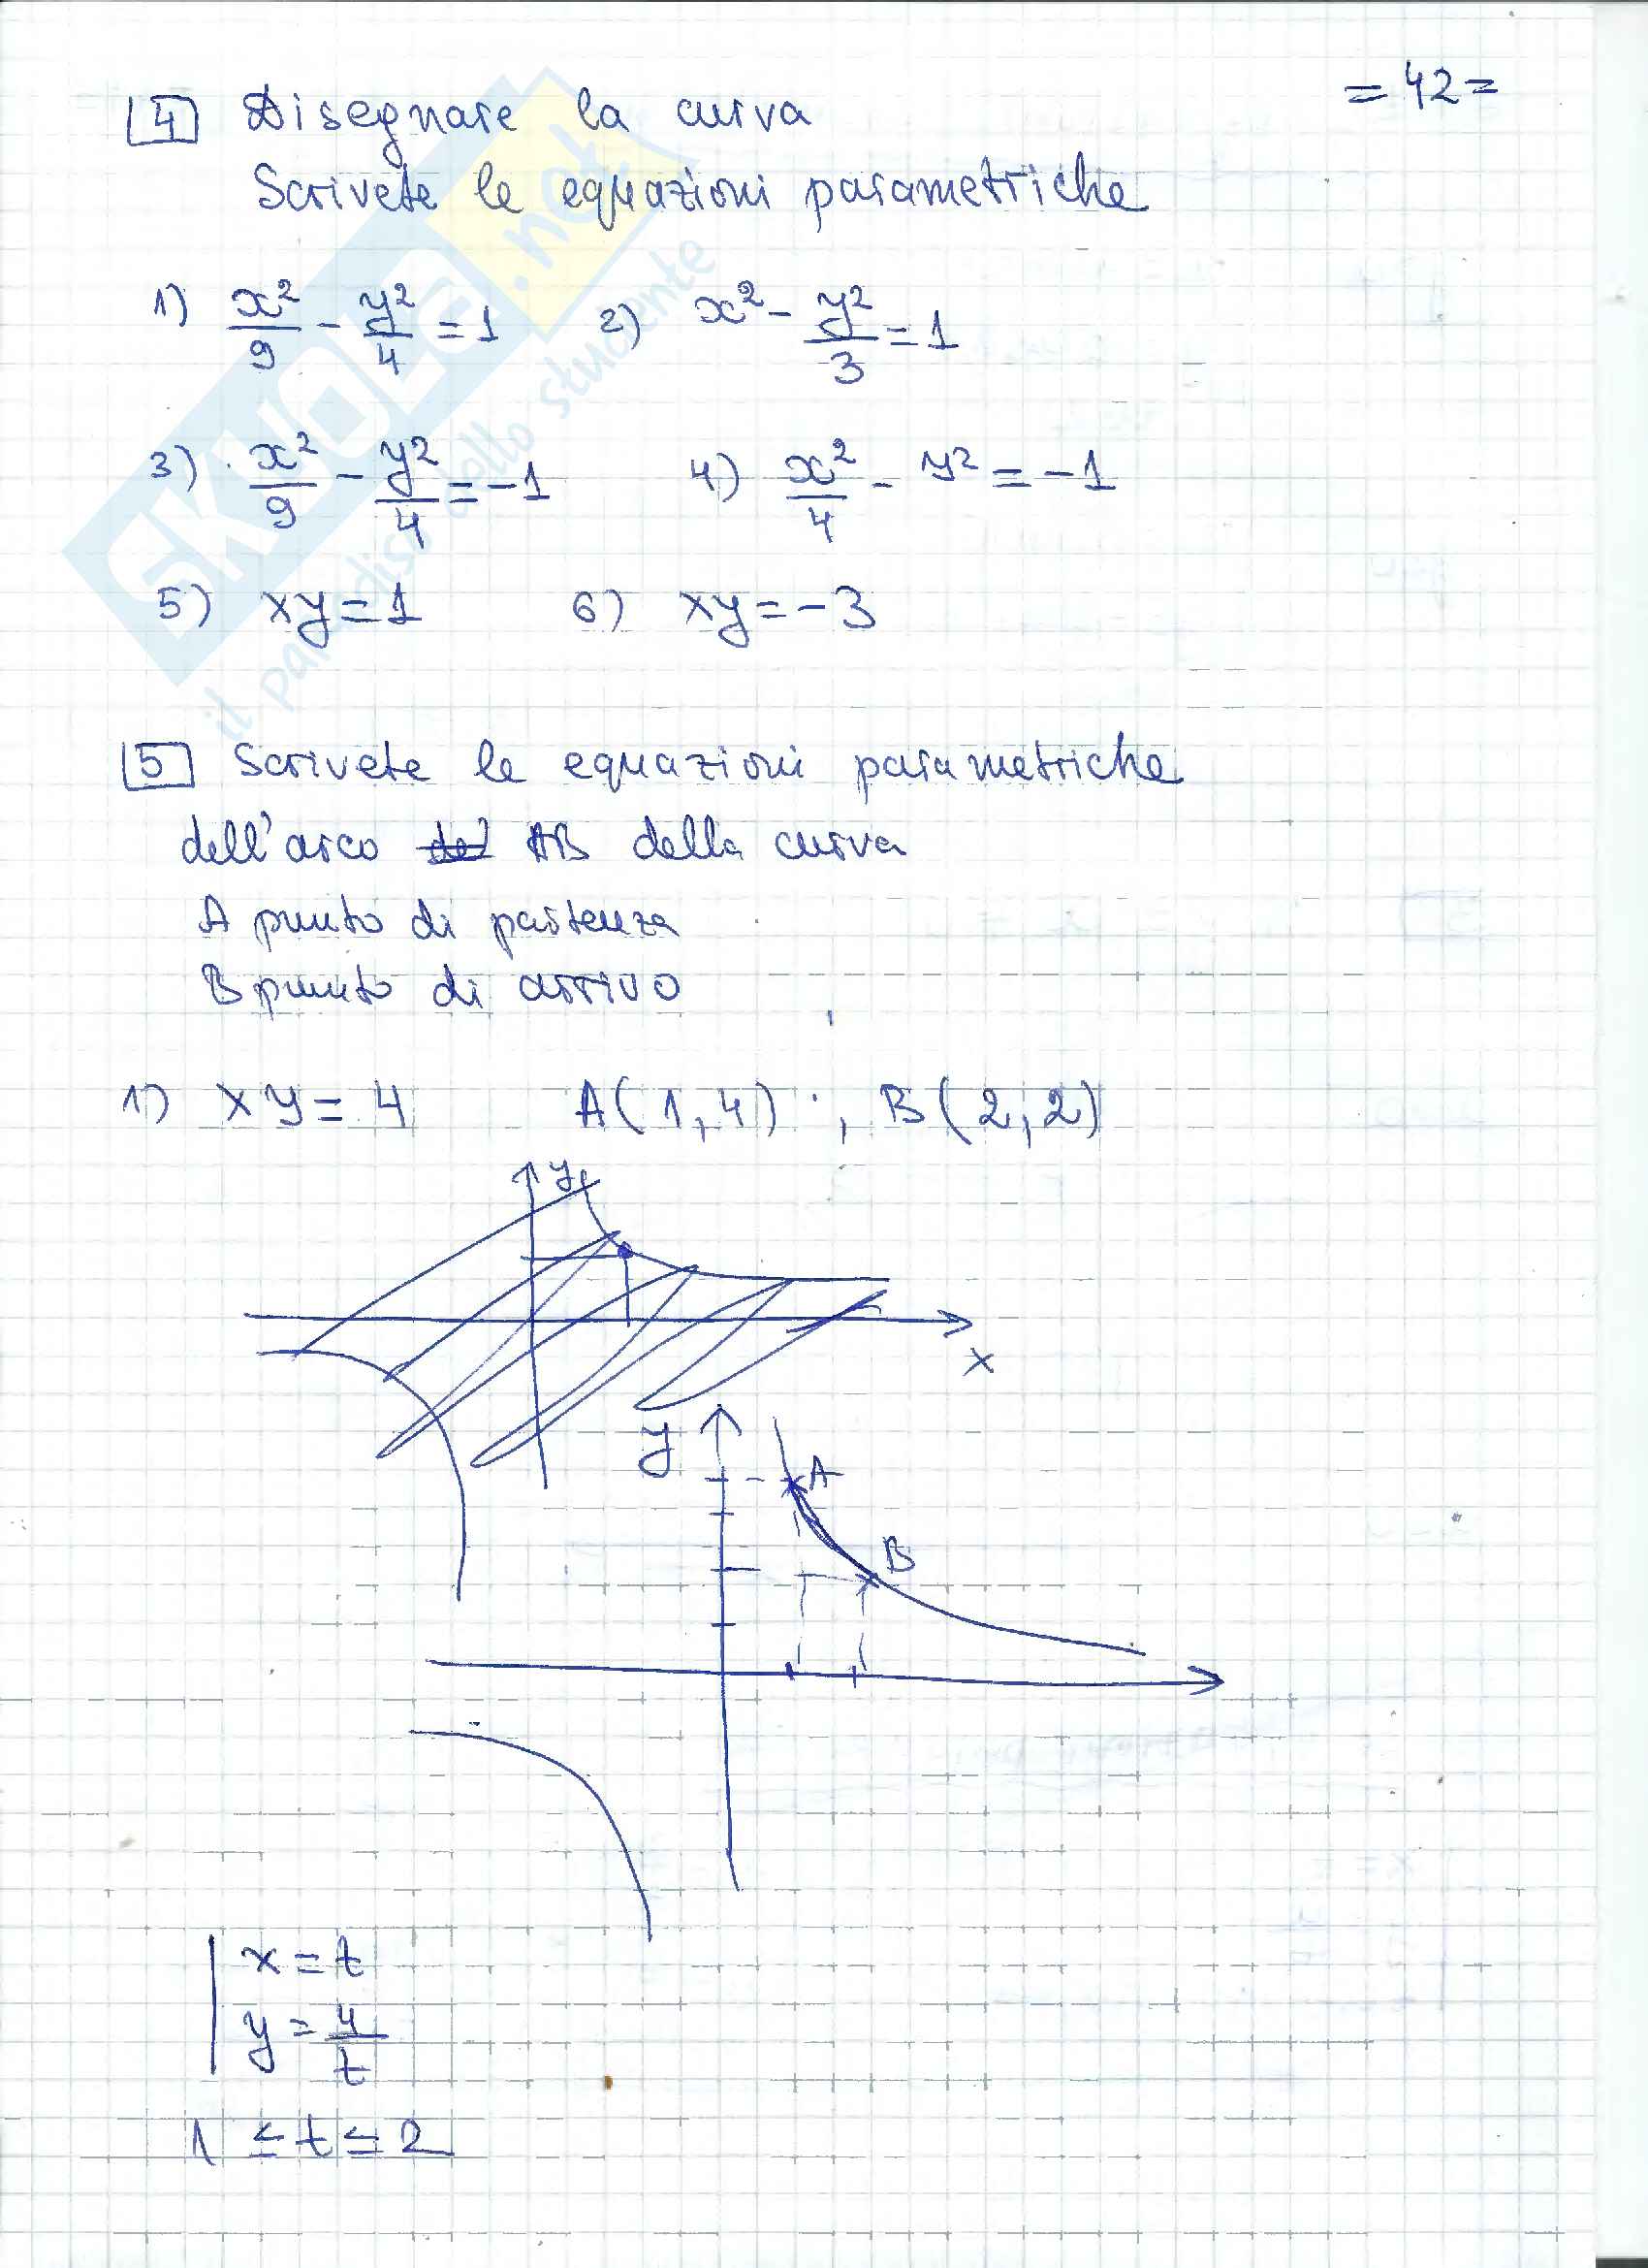 = 42 =
4 Disegnare la curva
Scrivete le equazioni parametriche
1) x²/9 - y²/4 = 1 2) x² - y²/3 = 1
3) x²/9 - y²/4 = -1 4) x²/4 - y² = -1
5) xy = 1 6) xy = -3
5 Scrivete le equazioni parametriche
dell'arco AB della curva
A punto di partenza
B punto di arrivo
1) xy = 4 A(1,4) ; B(2,2)
y
x
y
A
B
x = t
y = 4/t
1 ≤ t ≤ 2
SKUOLA.net
il paradiso dello studente